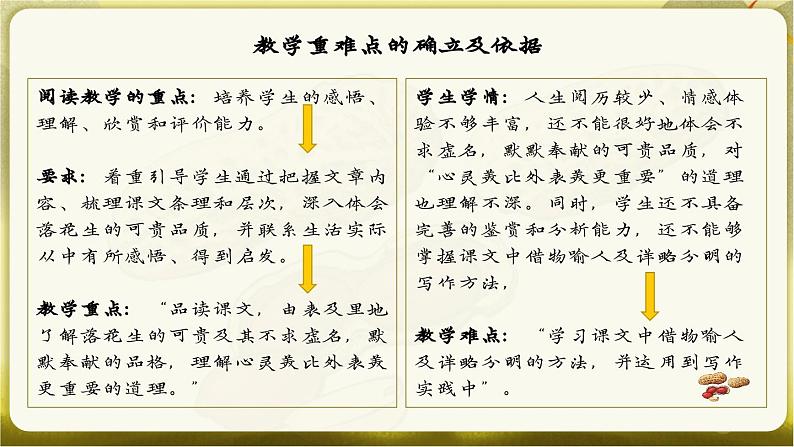 教学重难点的确立及依据
阅读教学的重点：培养学生的感悟、
理解、欣赏和评价能力。
要求：着重引导学生通过把握文章内
容、梳理课文条理和层次，深入体会
落花生的可贵品质，并联系生活实际
从中有所感悟、得到启发。
教学重点：“品读课文，由表及里地
了解落花生的可贵及其不求虚名，默
默奉献的品格，理解心灵美比外表美
更重要的道理。”
学生学情：人生阅历较少、情感体
验不够丰富，还不能很好地体会不
求虚名，默默奉献的可贵品质，对
“心灵美比外表美更重要”的道理
也理解不深。同时，学生还不具备
完善的鉴赏和分析能力，还不能够
掌握课文中借物喻人及详略分明的
写作方法，
教学难点：“学习课文中借物喻人
及详略分明的方法，并运用到写作
实践中”。